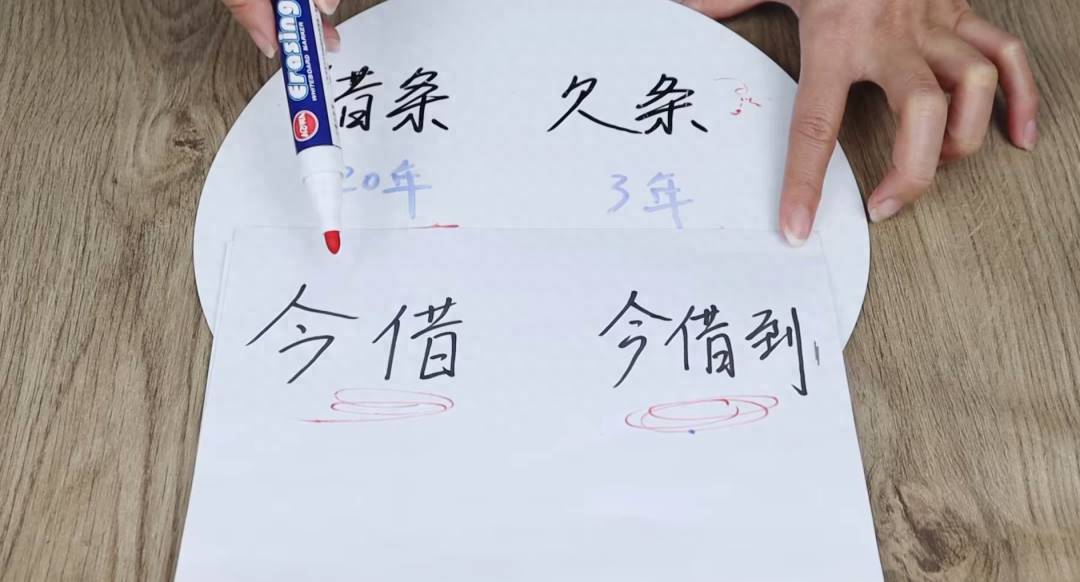 Erasing
WHITEBOARD MARKER
借条 欠条
20年 3年
今借 今借到